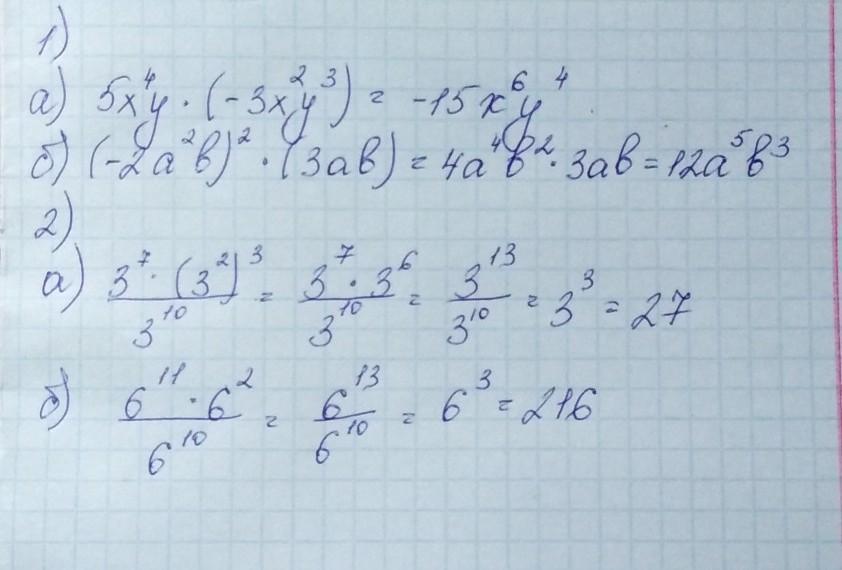 1)
а) 5x⁴y · (-3x²y³) = -15x⁶y⁴
б) (-2a²b)² · (3ab) = 4a⁴b² · 3ab = 12a⁵b³
2)
а) \frac{3⁷ · (3²)³}{3¹⁰} = \frac{3⁷ · 3⁶}{3¹⁰} = \frac{3¹³}{3¹⁰} = 3³ = 27
б) \frac{6¹¹ · 6²}{6¹⁰} = \frac{6¹³}{6¹⁰} = 6³ = 216